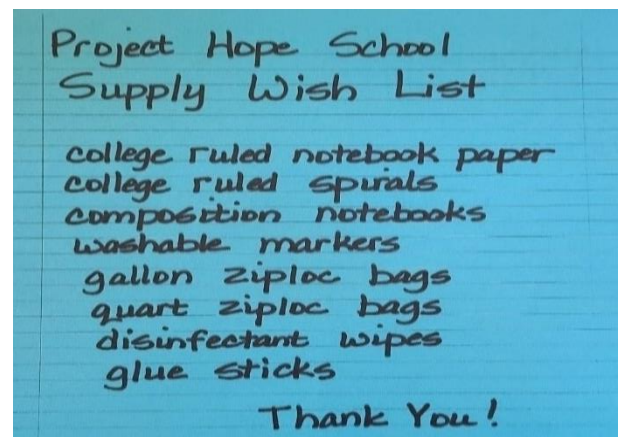 Project Hope School
Supply Wish List
college ruled notebook paper
college ruled spirals
composition notebooks
washable markers
gallon ziploc bags
quart ziploc bags
disinfectant wipes
glue sticks
Thank You!